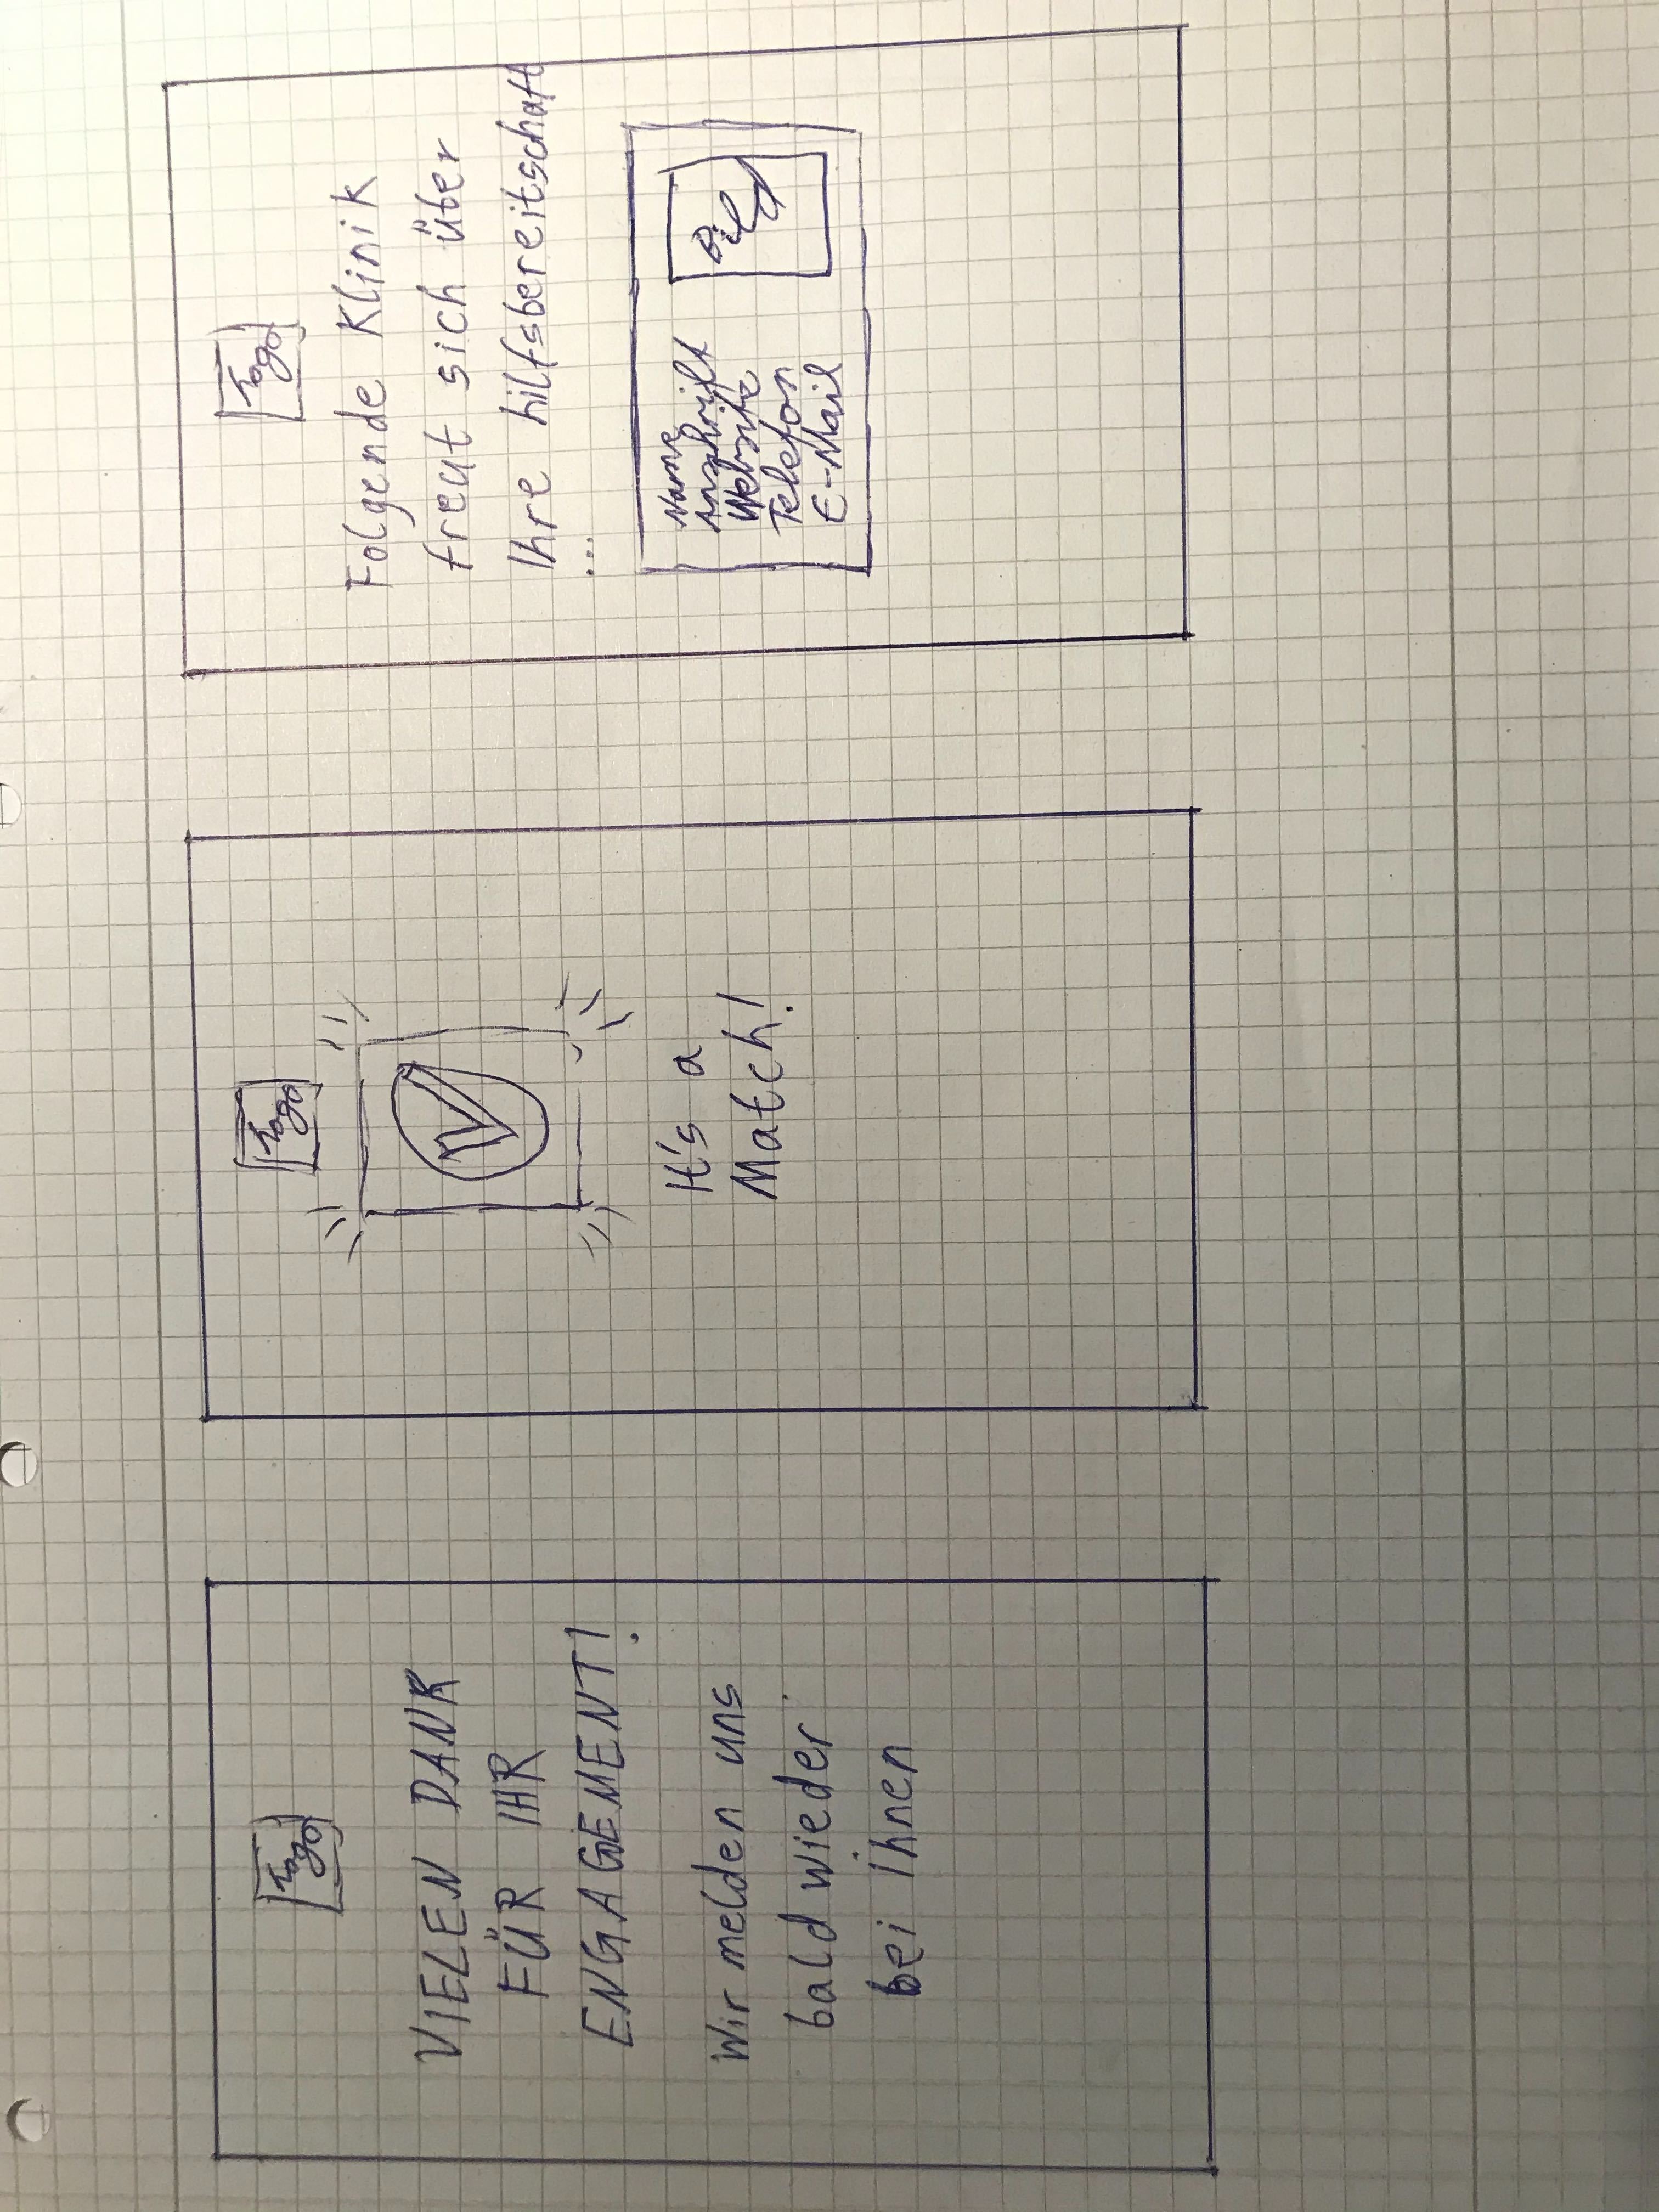 Logo
VIELEN DANK
FÜR IHR
ENGAGEMENT!
Wir melden uns
bald wieder
bei Ihnen
Logo
It's a
Match!
Logo
Folgende Klinik
freut sich über
Ihre hilfsbereitschaft
...
Name
Anschrift
Website
Telefon
E-Mail
Bild